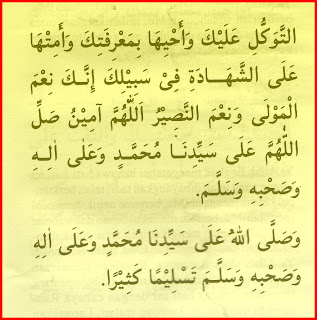 التَّوَكُّلِ عَلَيْكَ وَأَحْيِهَا بِمَعْرِفَتِكَ وَأَمِتْهَا
عَلَى الشَّهَـادَةِ فِىْ سَبِيْلِكَ إِنَّـكَ نِعْمَ
الْمَوْلَى وَنِعْمَ النَّصِيْرُ اَللّٰهُمَّ آمِيْنُ صَلِّ
اللّٰهُمَّ عَلَى سَيِّدِنَـا مُحَمَّـدٍ وَعَلٰى اٰلِـهِ
وَصَحْبِهِ وَسَلَّـمَ.
وَصَلَّى اللهُ عَلَى سَيِّدِنَا مُحَمَّدٍ وَعَلَى اٰلِهِ
وَصَحْبِهِ وَسَلَّـمَ تَسْلِيْمًا كَثِيْرًا.